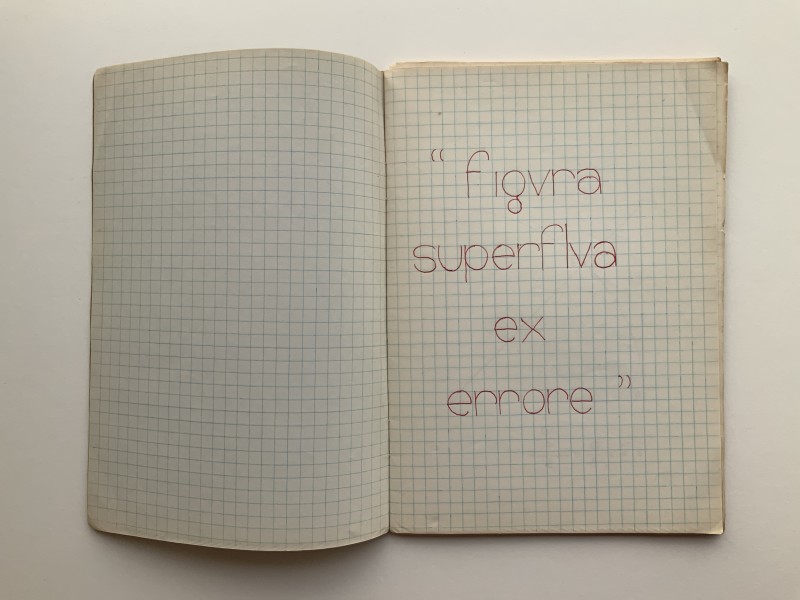 “ figvra
superflva
ex
errore ”